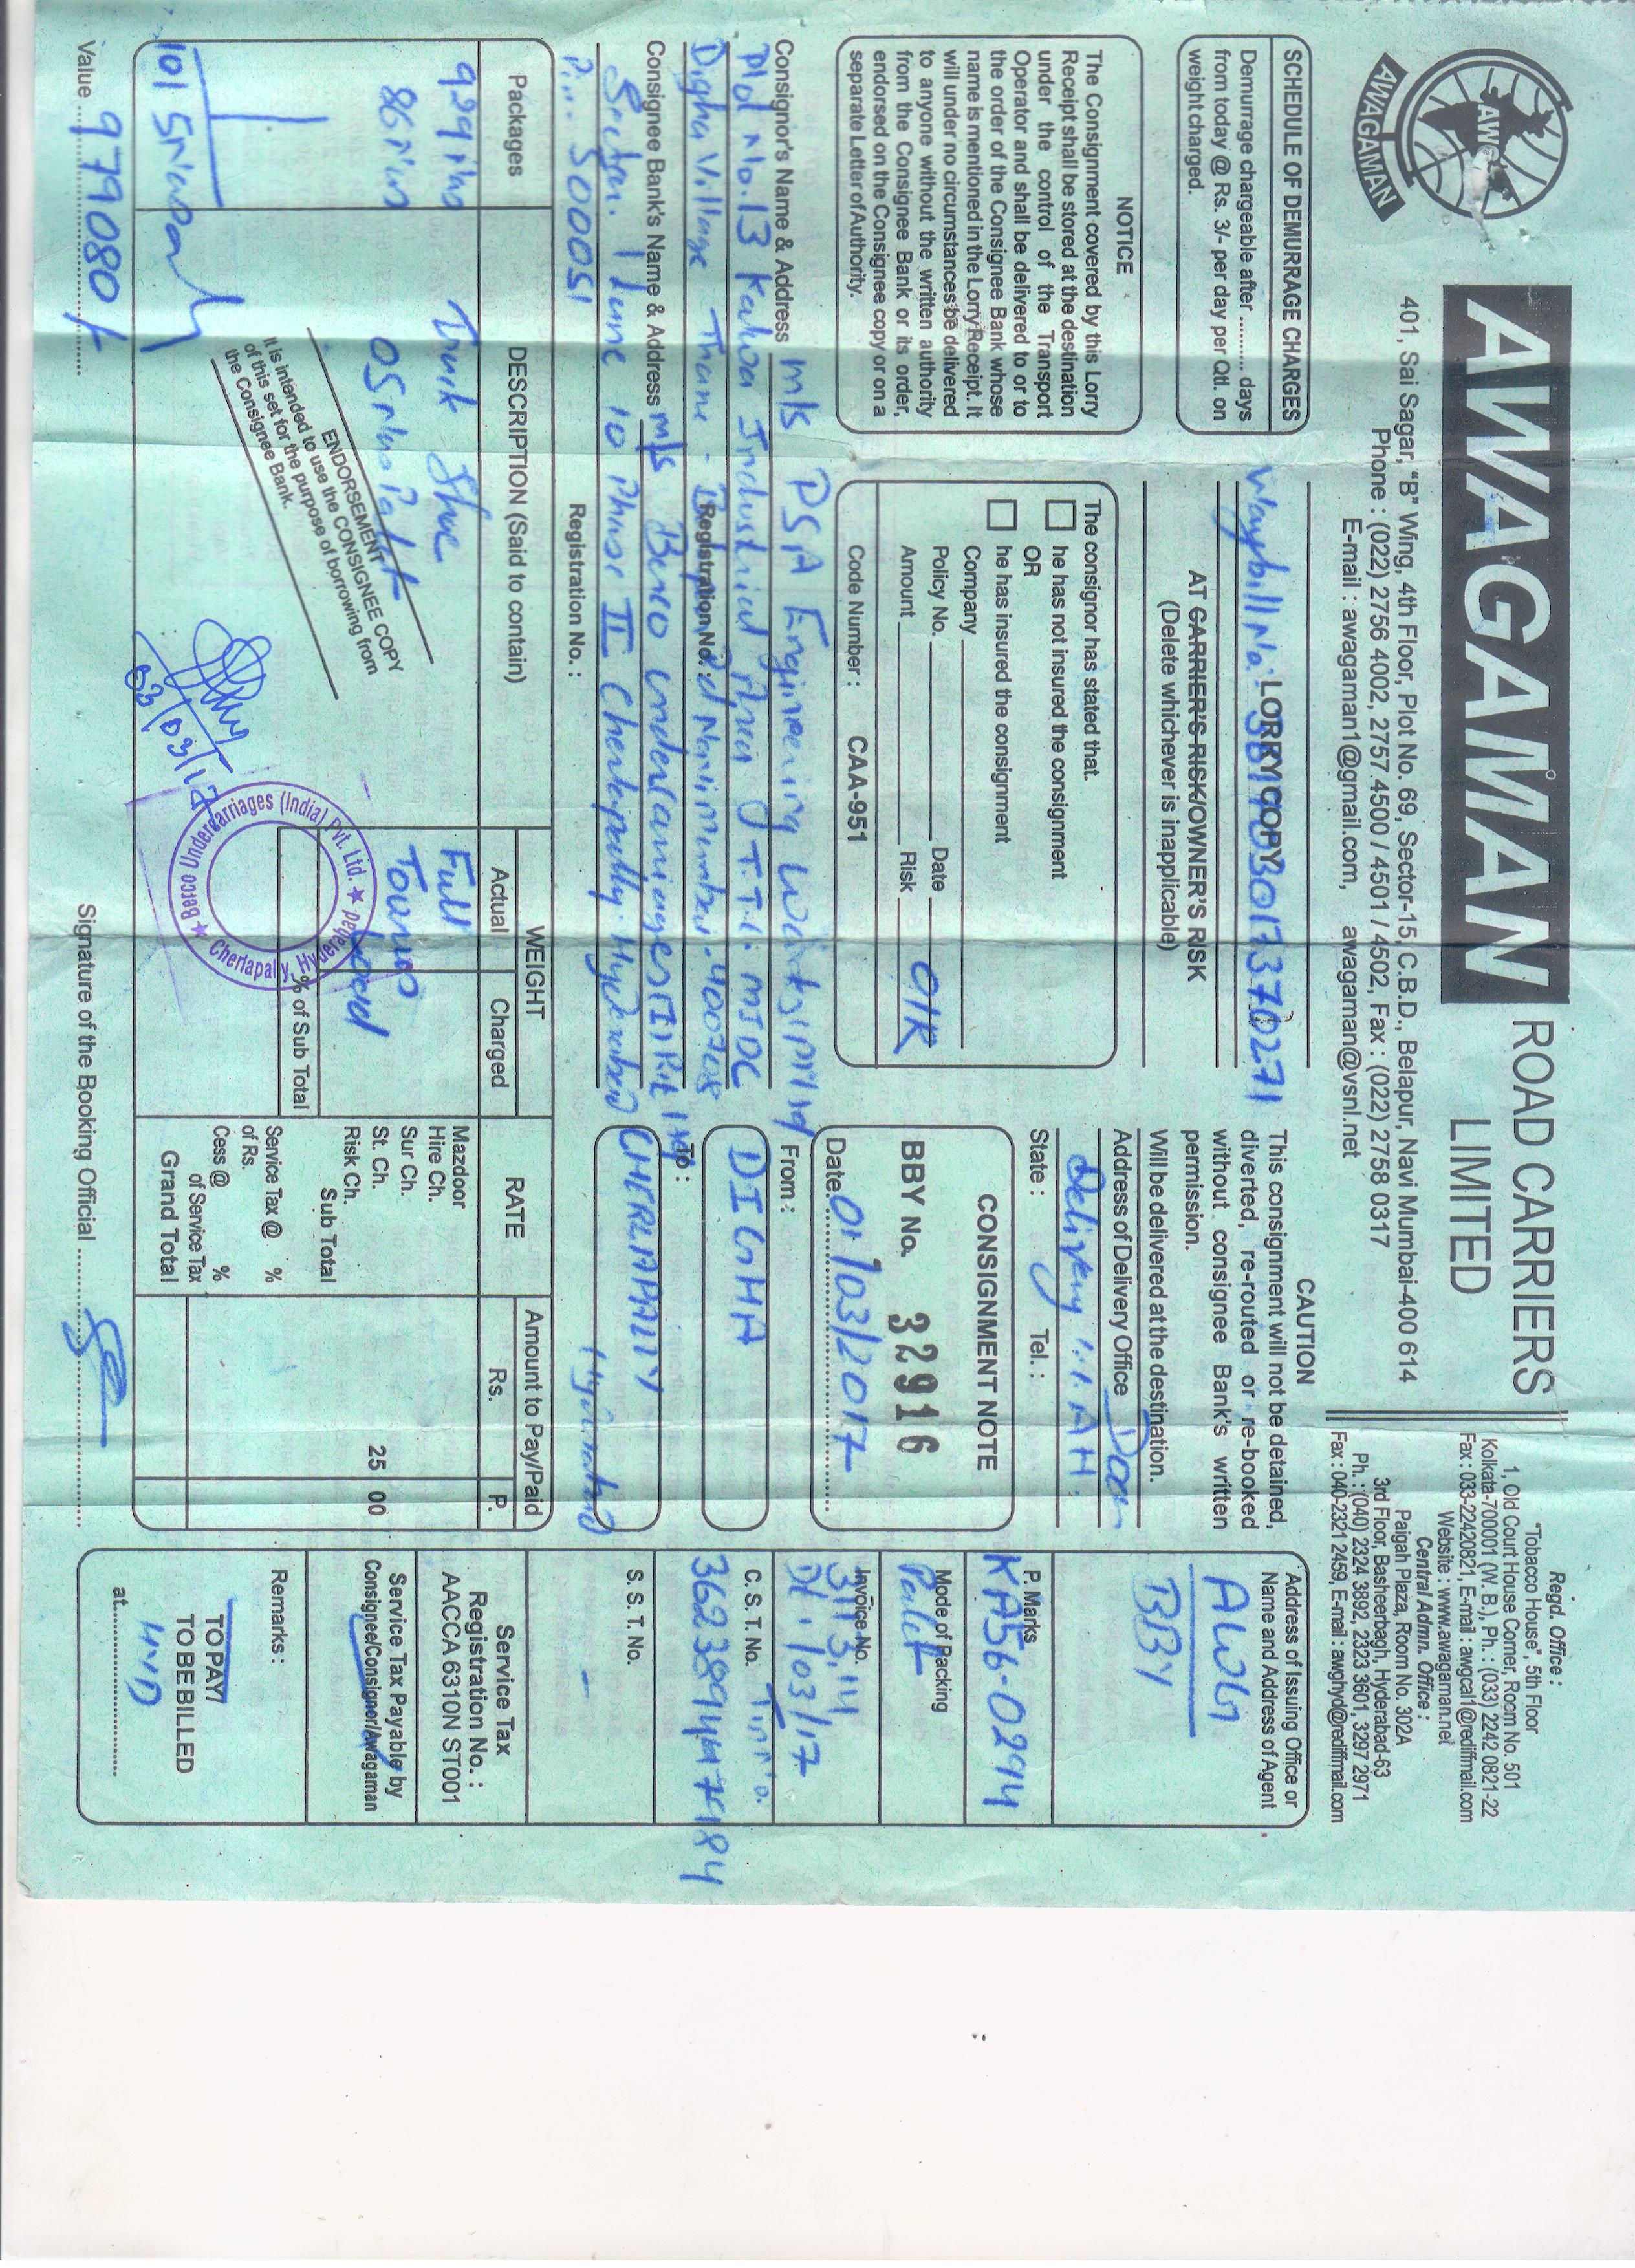 AWG
AWAGAMAN
AWAGAMAN ROAD CARRIERS
LIMITED
401, Sai Sagar, "B" Wing, 4th Floor, Plot No. 69, Sector-15, C.B.D., Belapur, Navi Mumbai-400 614
Phone : (022) 2756 4002, 2757 4500 / 4501 / 4502, Fax : (022) 2758 0317
E-mail : awagaman1@gmail.com, awagaman@vsnl.net
Regd. Office :
"Tobacco House", 5th Floor
1, Old Court House Corner, Room No. 501
Kolkata-700001 (W.B.), Ph. : (033) 2242 0821-22
Fax : 033-22420821, E-mail : awgcal1@rediffmail.com
Website : www.awagaman.net
Central Admn. Office :
Paigah Plaza, Room No. 302A
3rd Floor, Basheerbagh, Hyderabad-63
Ph. : (040) 2324 3892, 2323 3601, 3297 2971
Fax : 040-2321 2459, E-mail : awghyd@rediffmail.com
SCHEDULE OF DEMURRAGE CHARGES
Demurrage chargeable after ......... days
from today @ Rs. 3/- per day per Qtl. on
weight charged.
NOTICE
The Consignment covered by this Lorry
Receipt shall be stored at the destination
under the control of the Transport
Operator and shall be delivered to or to
the order of the Consignee Bank whose
name is mentioned in the Lorry Receipt. It
will under no circumstances be delivered
to anyone without the written authority
from the Consignee Bank or its order,
endorsed on the Consignee copy or on a
separate Letter of Authority.
Waybill No:
LORRY COPY
AT CARRIER'S RISK/OWNER'S RISK
(Delete whichever is inapplicable)
The consignor has stated that.
he has not insured the consignment
OR
he has insured the consignment
Company
Policy No. Date
Amount Risk O/R
Code Number : CAA-951
CAUTION
This consignment will not be detained,
diverted, re-routed or re-booked
without consignee Bank's written
permission.
Will be delivered at the destination.
Address of Delivery Office Door
Delivery
State : Tel. :
CONSIGNMENT NOTE
BBY No. 32916
Date 01/03/2017
From :
DIGHA
To :
CHERLAPALLY
Hyderabad
Address of Issuing Office or
Name and Address of Agent
AWG
BBY
P. Marks
KA56-0294
Mode of Packing
Pallet
Invoice No.
3113,14
Dt. 1/03/17
C. S. T. No. Tin No.
S. S. T. No.
-
Service Tax
Registration No. :
AACCA 6310N ST001
Service Tax Payable by
Consignee/Consignor/Awagaman
Remarks :
TO PAY/
TO BE BILLED
at HYD
Consignor's Name & Address M/s PSA Engineering Works (P) Ltd
Plot No. 13 Kalwa Industrial Area T.T.C. MIDC
Digha Village Thane - Navimumbai - 400708
Registration No. :
Consignee Bank's Name & Address M/s Berco Undercarriages (I) Pvt Ltd
Sector. 1 Lane 10 Phase II Cherlapally Hyderabad
Pin 500051
Registration No. :
Packages DESCRIPTION (Said to contain) WEIGHT RATE Amount to Pay/Paid
Actual Charged Rs. P.
929 nos Track Shoe
86 nos 05 nos Pallet
1015 nos
Full
Load
Mazdoor
Hire Ch.
Sur Ch.
St. Ch. 25 00
Risk Ch.
Sub Total
% of Sub Total
Service Tax @ %
of Rs.
Cess @ %
of Service Tax
Grand Total
ENDORSEMENT
It is intended to use the CONSIGNEE COPY
of this set for the purpose of borrowing from
the Consignee Bank.
03/03/17
Berco Undercarriages (India) Pvt. Ltd.
Cherlapally, Hyderabad
Value 979080/-
Signature of the Booking Official